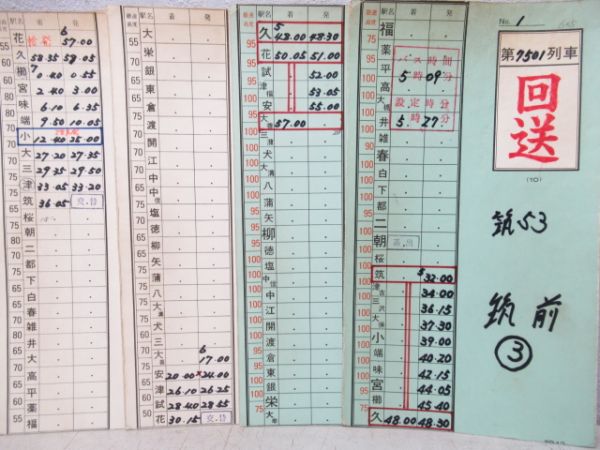 No. 1
第7501列車
回送
(TO)
筑53
筑前
③
駅名 着 発
花 57.00
久 58.35 58.05
櫛 0.40 0.55
宮 2.40 3.00
味 6.10 6.35
端 9.50 10.05
小 12.40 25.00
大 27.20 27.35
三 29.35 29.50
津 33.05 33.20
筑 36.05 交.替
桜
朝
二
都
下
白
春
雑
井
大
高
平
薬
福
駅名 着 発
大
栄
銀
東
倉
渡
開
江
中
中
塩
徳
柳
矢
蒲
八
大溝
犬
三
大 17.00
安 20.00 24.00
津 26.10 26.25
試 28.40 28.55
花 30.15 交.替
駅名 着 発
久 48.00 48.30
花 50.05 51.00
試 52.00
津 53.05
安 55.00
大 57.00
三
犬
大溝
八
蒲
矢
柳
徳
塩
中
中
江
開
渡
倉
東
銀
栄
大
駅名 着 発
福
薬
平
高
大
井
雑
春
白
下
都
二
朝
桜
バス時間
5時09分
設定時分
5時27分
筑 32.00
津 34.00
三 36.15
大 37.30
小 39.00
端 40.20
味 42.15
宮 44.05
櫛 45.40
久 48.00 48.30